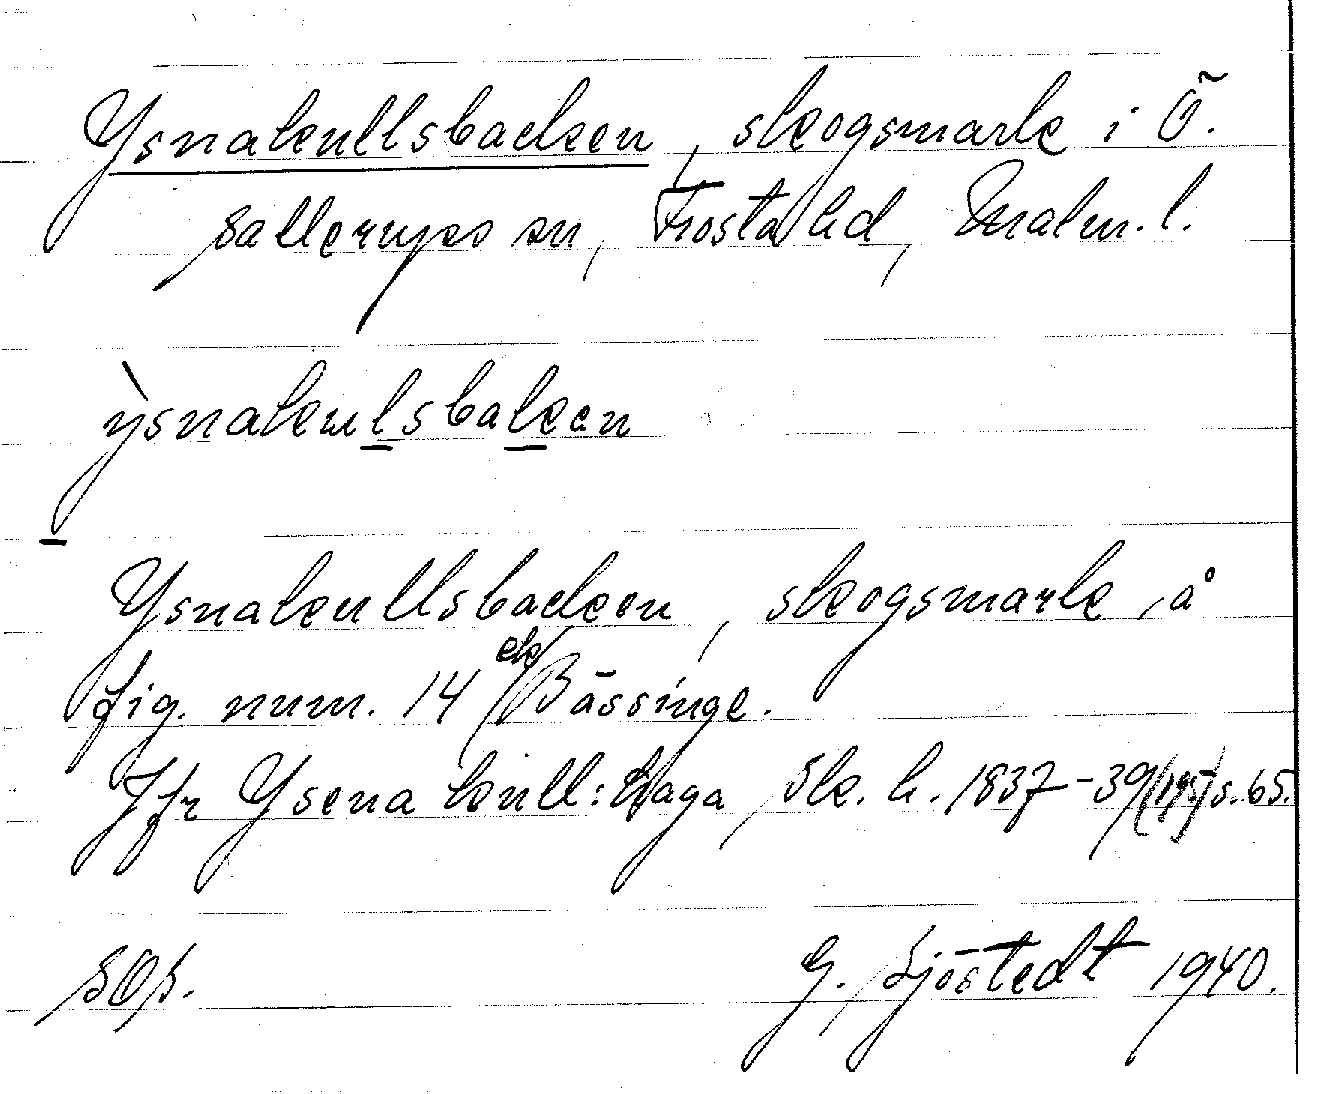 Ysnakullsbacken, skogsmark i Ö.
Sallerups sn, Frosta hd, Malm. l.
ỳsnakulsbaken
Ysnakullsbacken, skogsmark, å
fig. num. 14 Bässinge.
Jfr Ysena kull: Haga, Sk. h. 1837-39 s. 65.
SOS. G. Sjöstedt 1940.